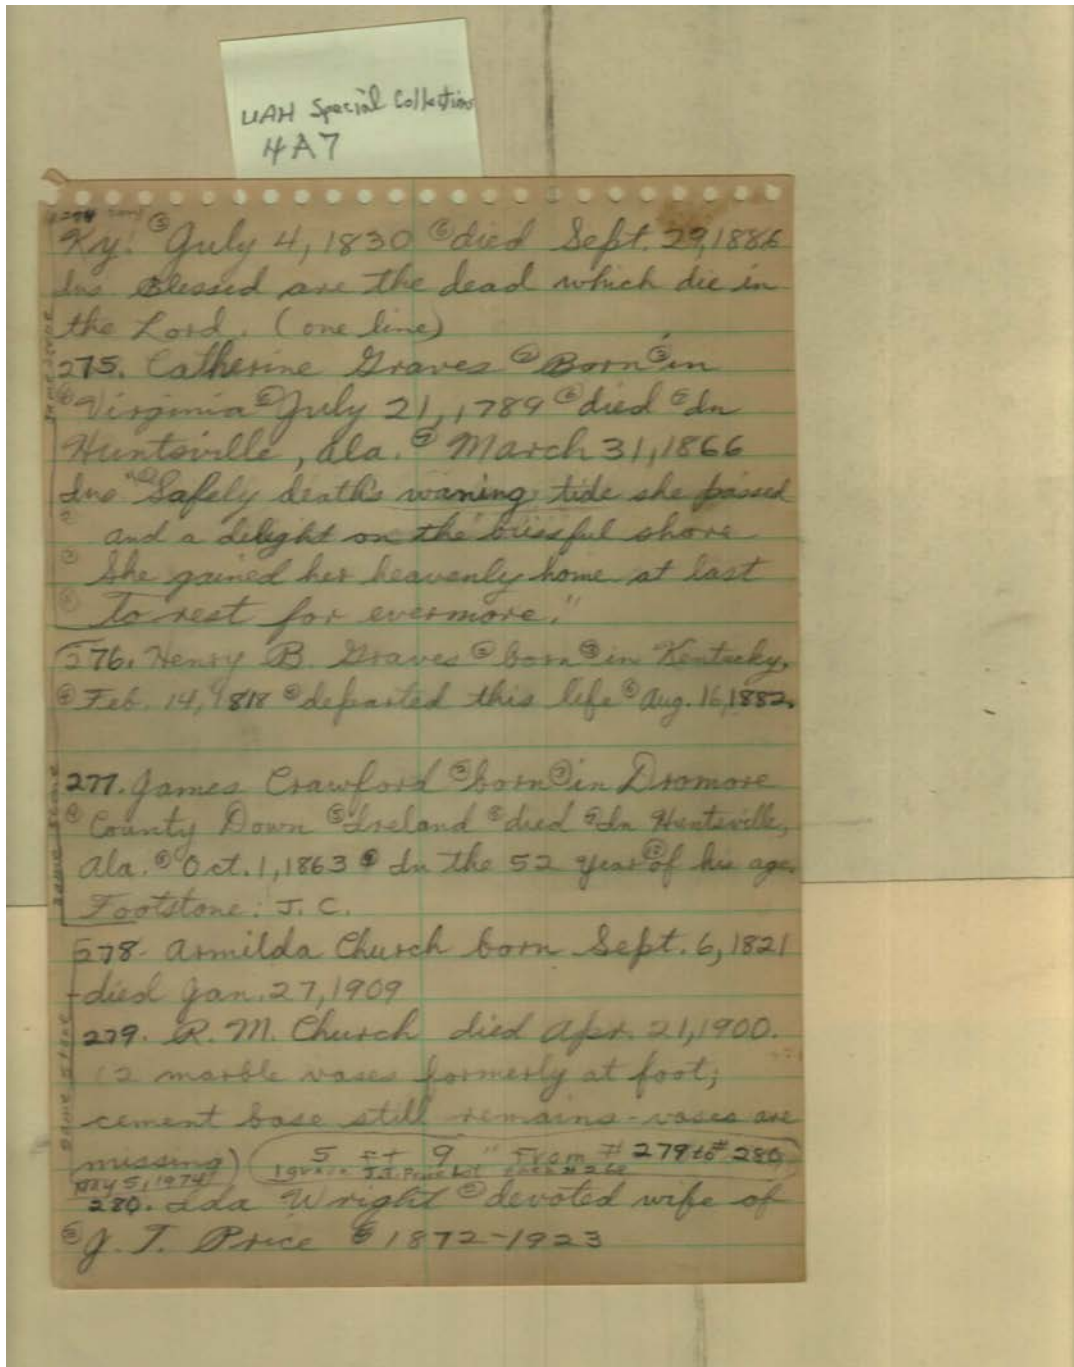 UAH Special Collections
4A7
274
Ky. ⑤ July 4, 1830 ⑥ died Sept. 29, 1886
Ins Blessed are the dead which die in
the Lord. (one line)
same stone
275. Catherine Graves ② Born ③ in
④ Virginia ⑤ July 21, 1789 ⑥ died ⑦ In
Huntsville, Ala. ⑨ March 31, 1866
Ins "Safely death's waning tide she passed
and a delight on the blissful shore
She gained her heavenly home at last
To rest for evermore."
276. Henry B. Graves ② born ③ in Kentucky,
④ Feb. 14, 1818 ⑤ departed this life ⑥ Aug. 16, 1882.
same stone
277. James Crawford ② born ③ in Dromore
④ County Down ⑤ Ireland ⑥ died ⑦ In Huntsville,
Ala. ⑧ Oct. 1, 1863 ⑨ In the 52 year ⑩ of his age.
Footstone: J. C.
same stone
278. Armilda Church born Sept. 6, 1821
died Jan. 27, 1909
279. R. M. Church died Apr. 21, 1900.
(2 marble vases formerly at foot;
cement base still remains - vases are
missing)
May 5, 1974
5 ft 9 " From # 279 to # 280
280. Ida Wright ② devoted wife of
③ J. T. Price ④ 1872-1923